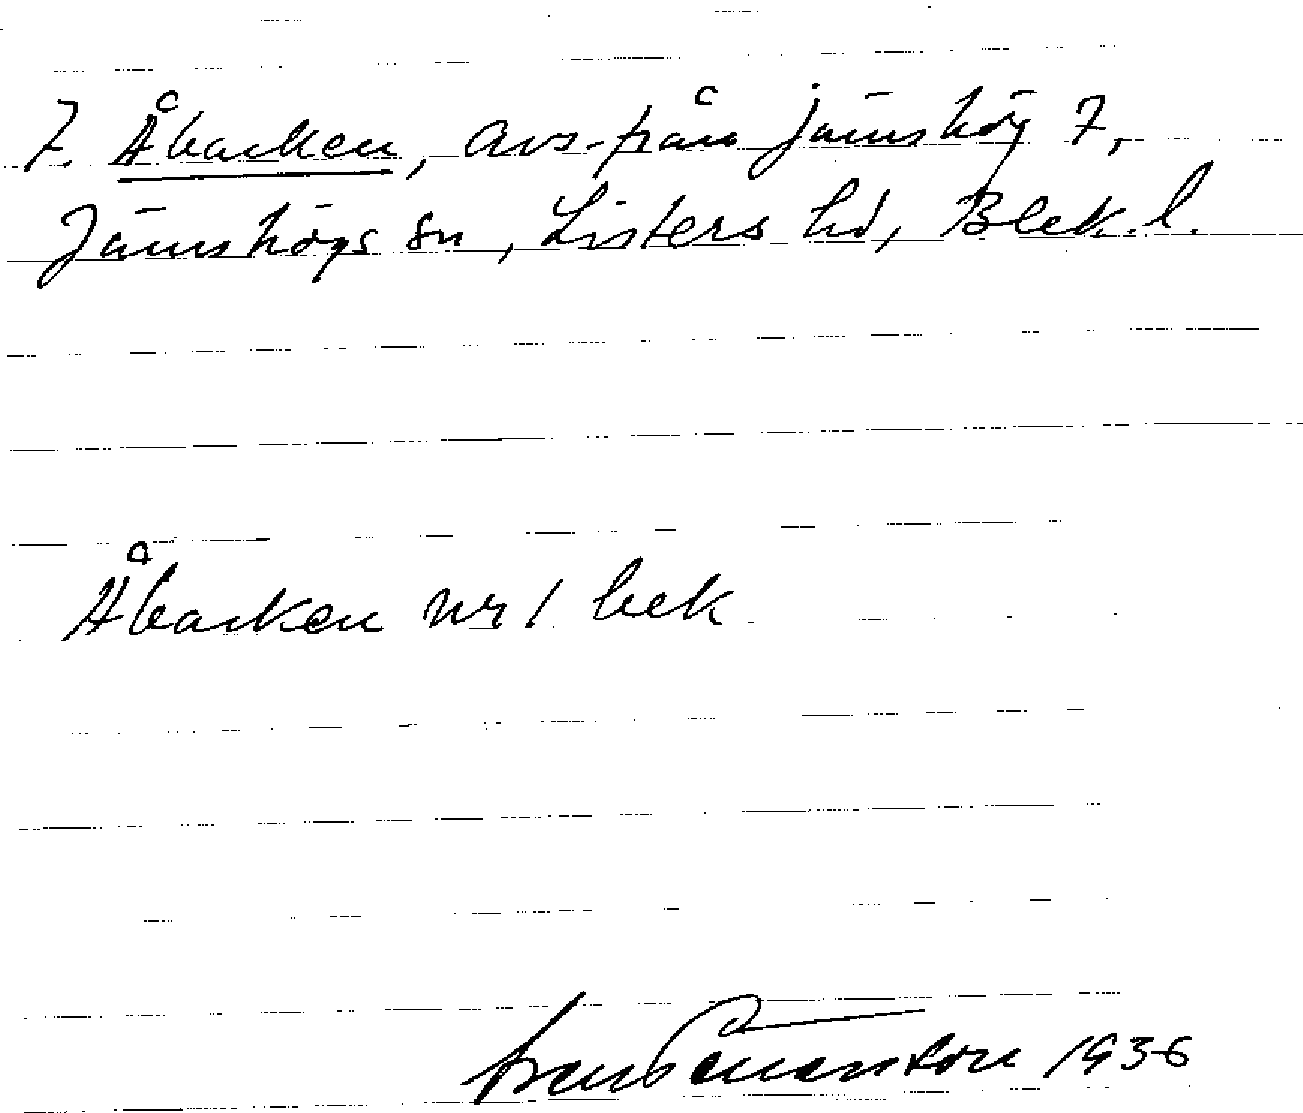 7. Åbacken, avs. från Jämshög 7,
Jämshögs sn, Listers hd, Blek. l.
Åbacken nr 1 bek
1936